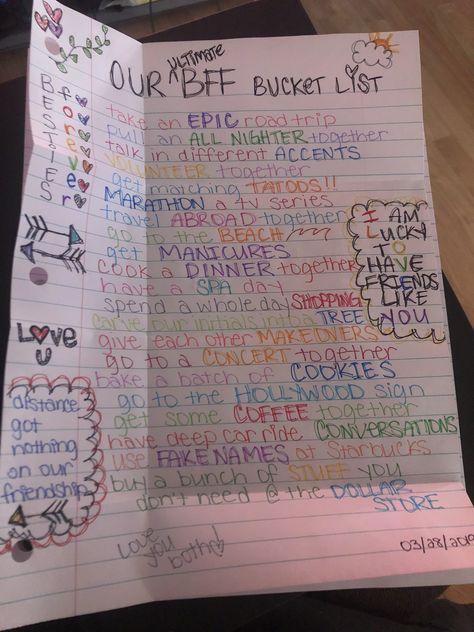 OUR ULTIMATE BFF BUCKET LIST
BESTIES
Forever
take an EPIC road trip
pull an ALL NIGHTER together
talk in different ACCENTS
VOLUNTEER together
get matching TATOOS!!
MARATHON a tv series
travel ABROAD together
go to the BEACH
get MANICURES
cook a DINNER together
have a SPA day
spend a whole day SHOPPING
carve our initials into a TREE
give each other MAKEOVERS
go to a CONCERT together
bake a batch of COOKIES
go to the HOLLYWOOD sign
get some COFFEE together
have deep car ride CONVERSATIONS
use FAKE NAMES at Starbucks
buy a bunch of STUFF you
don't need @ the DOLLAR
STORE
I AM
LUCKY
TO
HAVE
FRIENDS
LIKE
YOU
LOVE
U
distance
got
nothing
on our
friendship
love
you
both!
03/28/2019